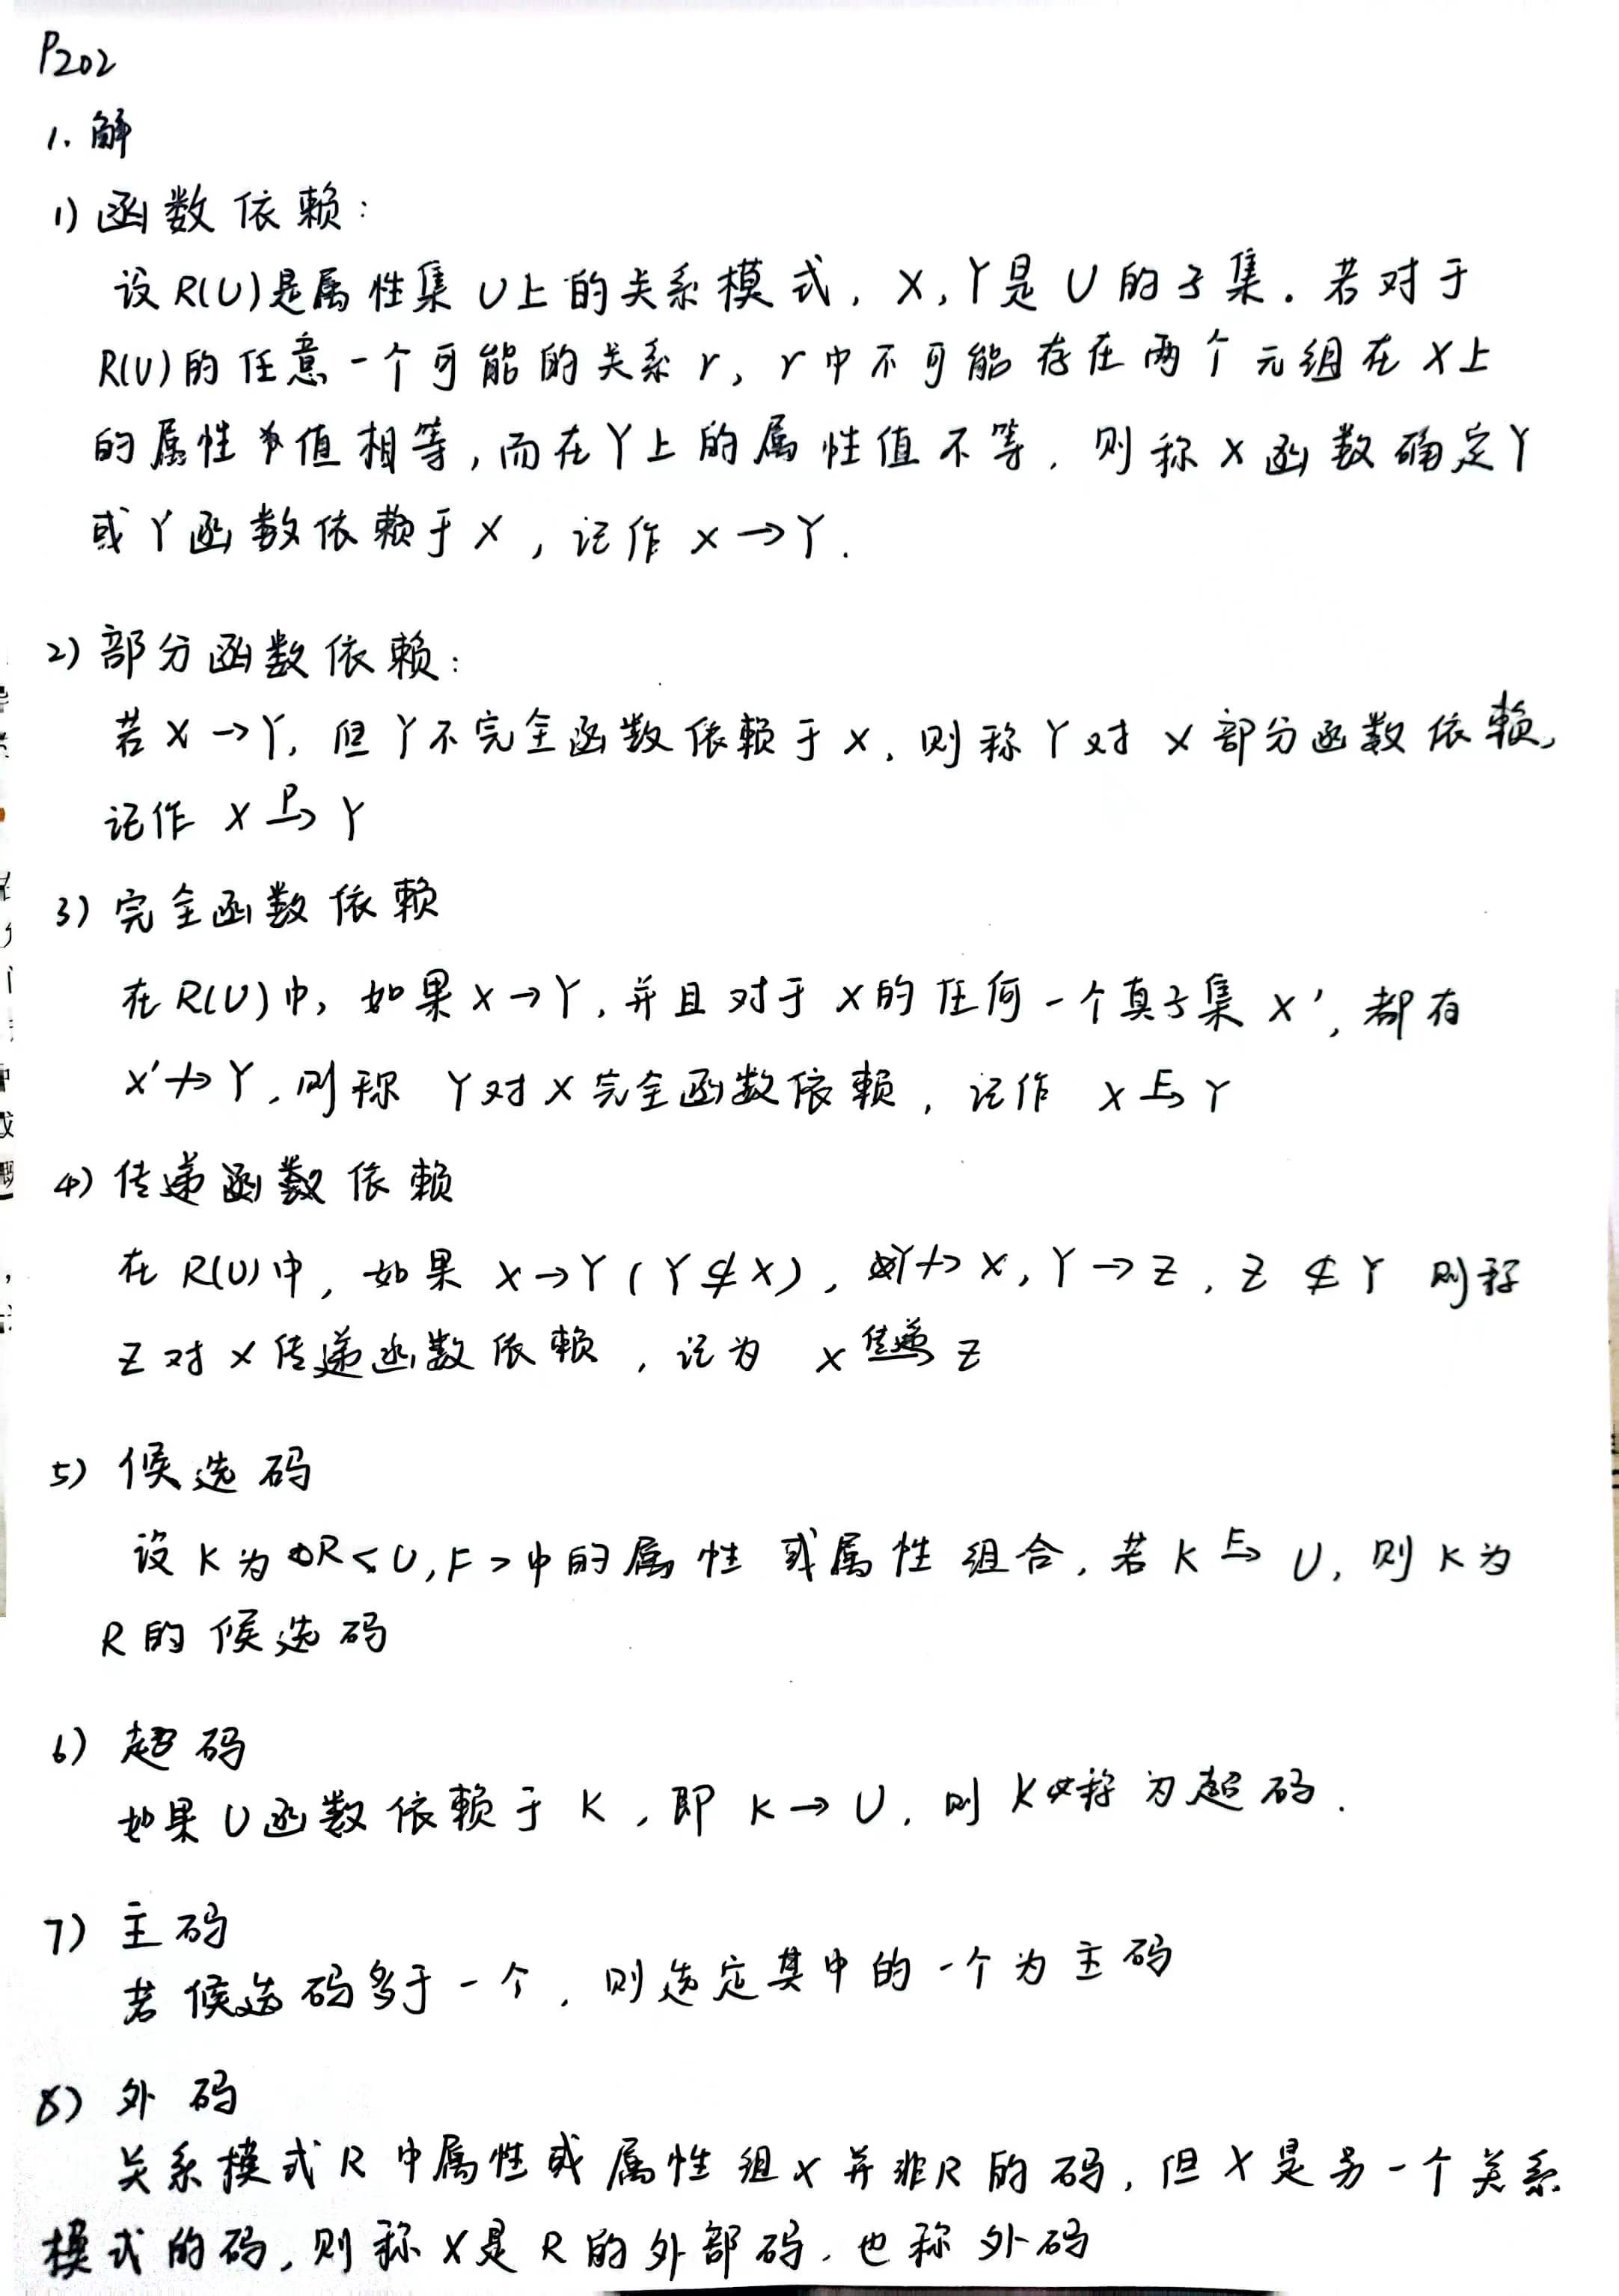 P202
1. 解
1) 函数依赖：
设R(U)是属性集U上的关系模式，X,Y是U的子集。若对于
R(U)的任意一个可能的关系r，r中不可能存在两个元组在X上
的属性值相等，而在Y上的属性值不等，则称X函数确定Y
或Y函数依赖于X，记作X→Y.
2) 部分函数依赖：
若X→Y，但Y不完全函数依赖于X，则称Y对X部分函数依赖，
记作 X P→ Y
3) 完全函数依赖
在R(U)中，如果X→Y，并且对于X的任何一个真子集X'，都有
X'↛Y，则称 Y对X完全函数依赖，记作 X F→ Y
4) 传递函数依赖
在R(U)中，如果 X→Y(Y⊄X)，Y↛X，Y→Z，Z⊄Y 则称
Z对X传递函数依赖，记为 X 传递→ Z
5) 候选码
设K为R<U,F>中的属性或属性组合，若K F→ U，则K为
R的候选码
6) 超码
如果U函数依赖于K，即K→U，则K称为超码.
7) 主码
若候选码多于一个，则选定其中的一个为主码
8) 外码
关系模式R中属性或属性组X并非R的码，但X是另一个关系
模式的码，则称X是R的外部码，也称外码